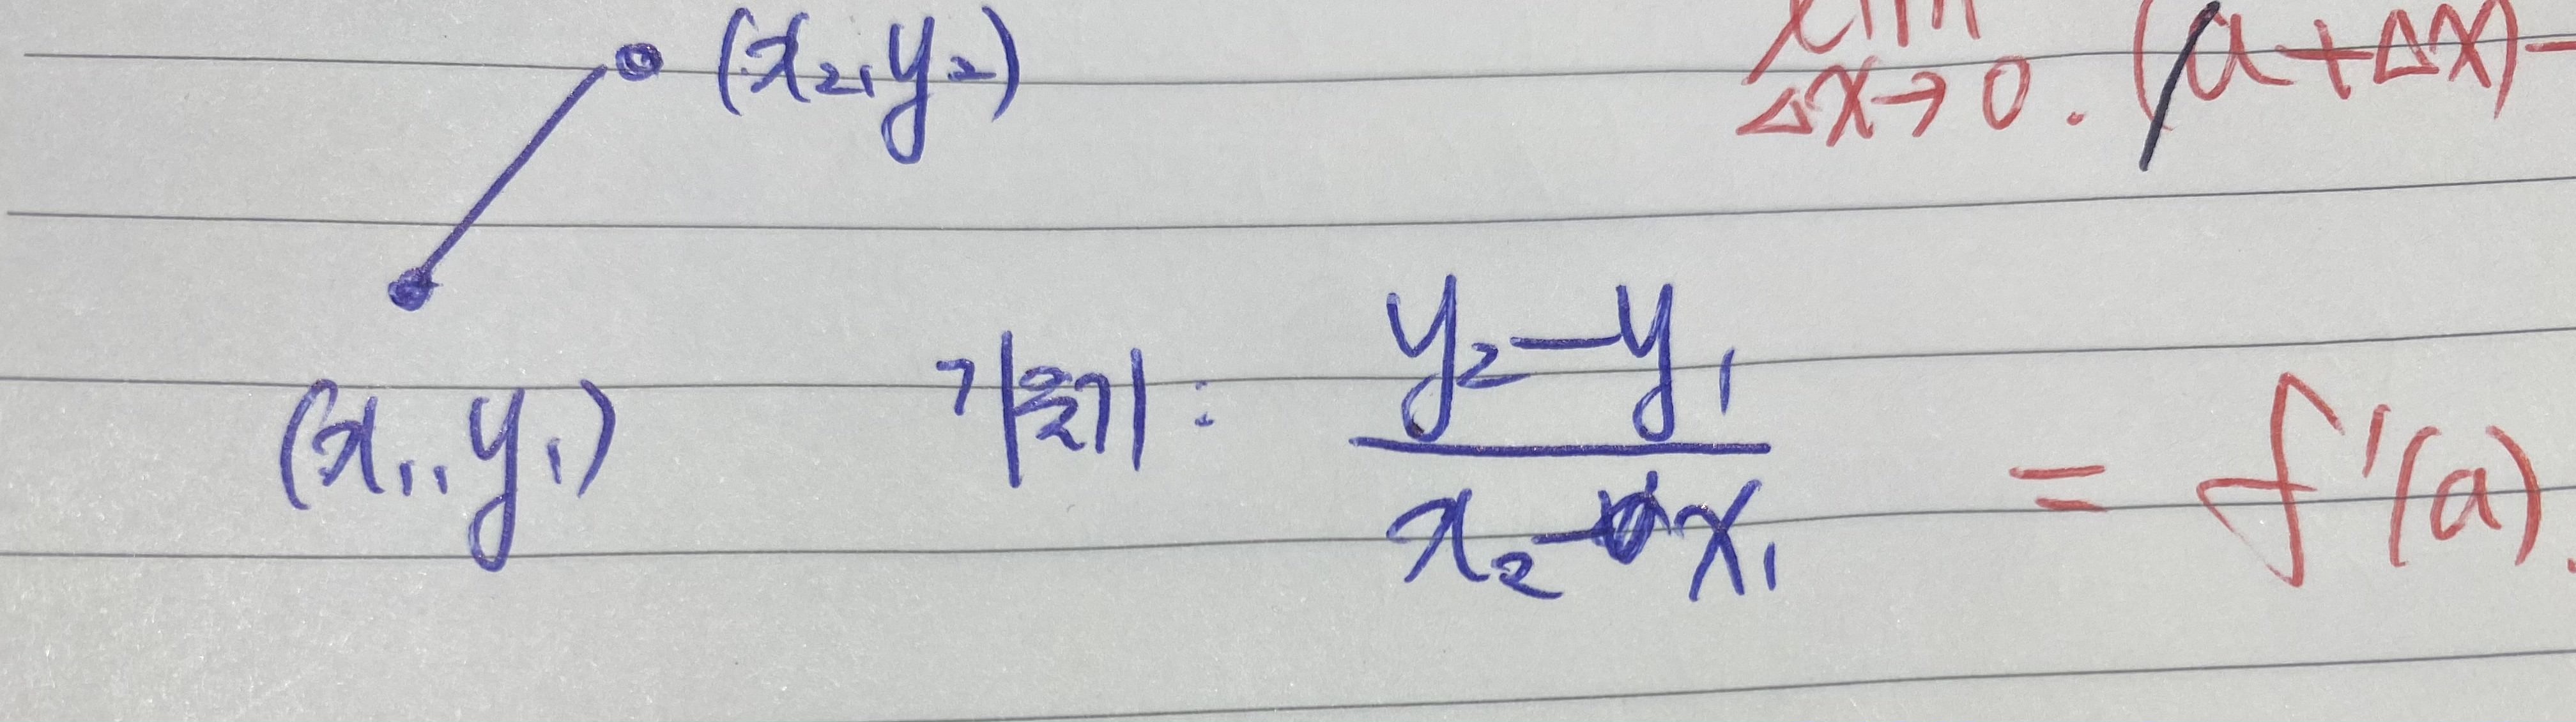 (x₂, y₂)
lim
Δx→0. (a+Δx)-
(x₁, y₁)
기울기: y₂-y₁
x₂-x₁
= f'(a).